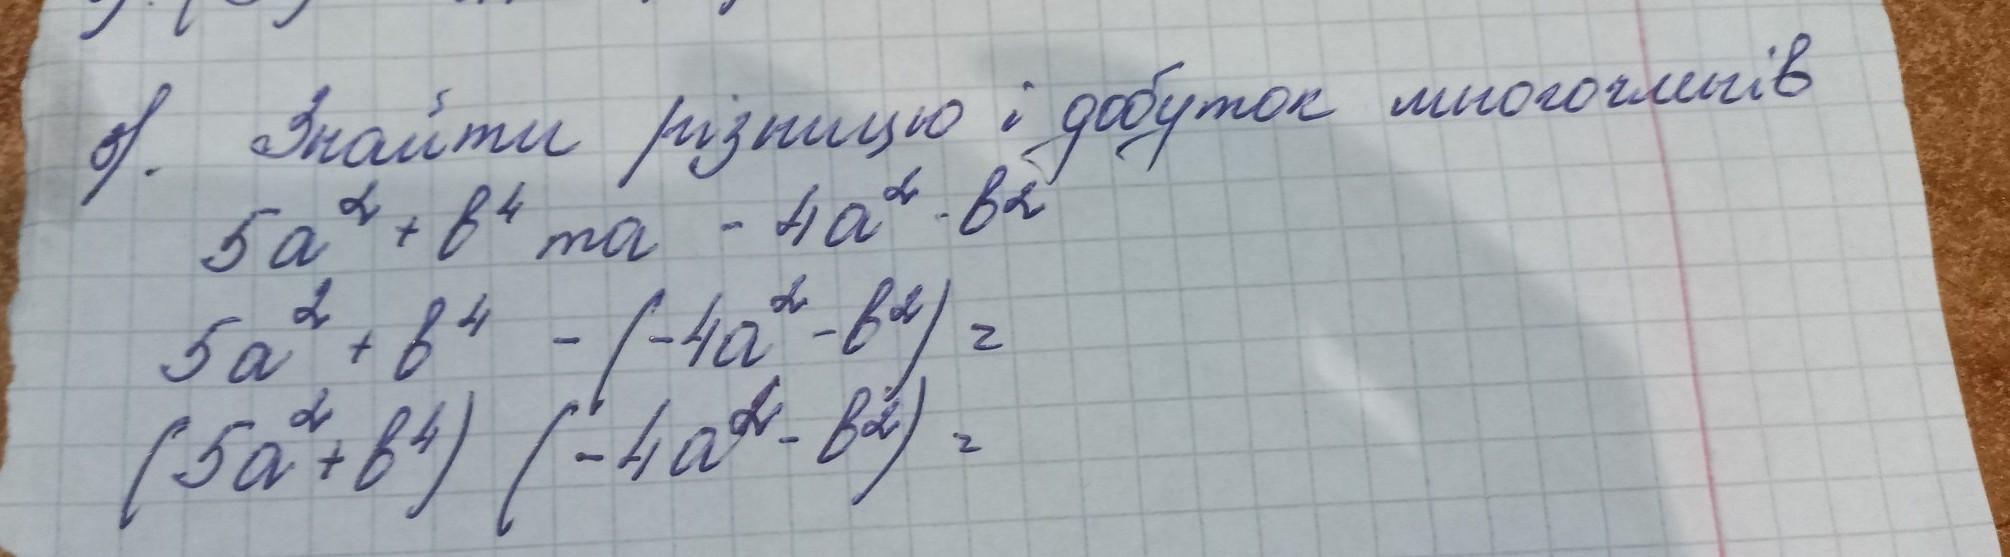 в). Знайти різницю і добуток многочленів
5a² + b⁴ та - 4a² - b²
5a² + b⁴ - (-4a² - b²) =
(5a² + b⁴) (-4a² - b²) =